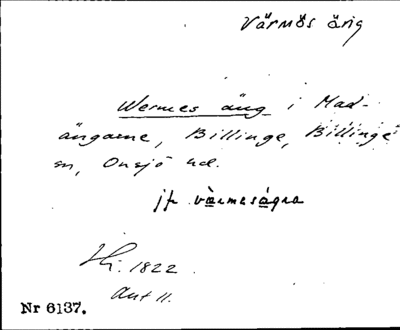 Värmös äng
Wermes äng i Mad-
ängarne, Billinge, Billinge
sn, Onsjö hd.
jfr värmesägra
Hj. 1822
Avt 11.
Nr 6137.